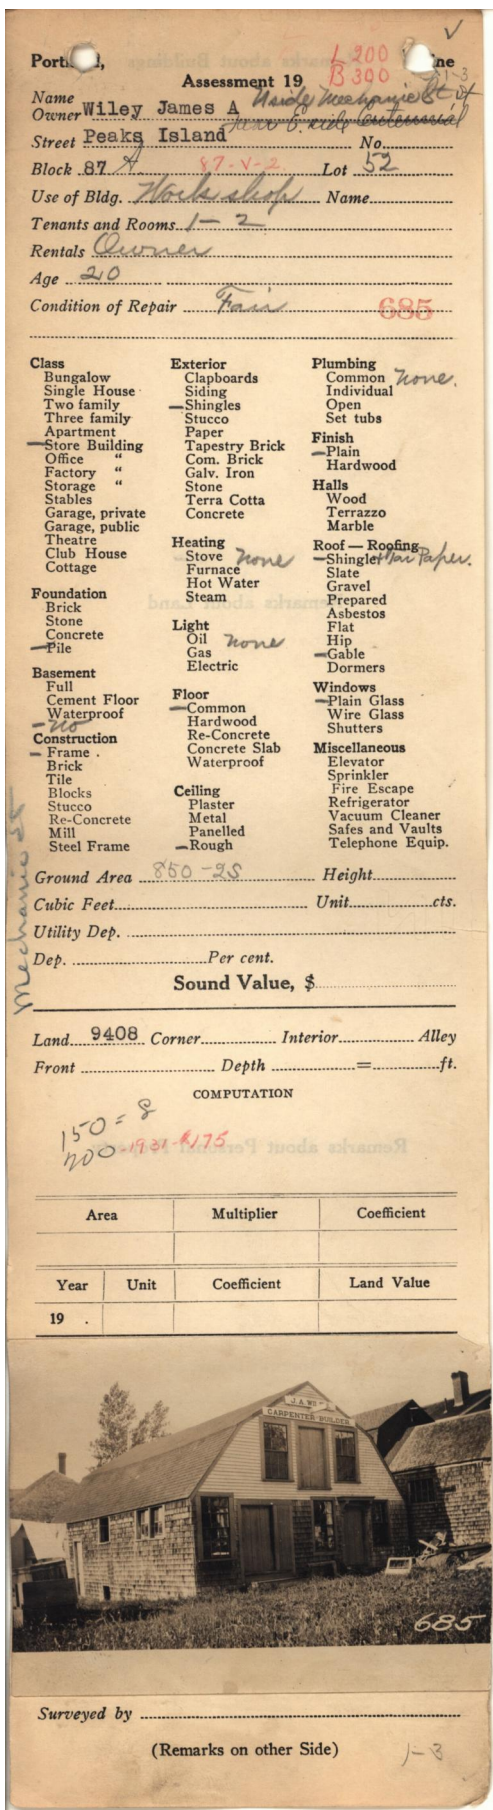 Portland, Maine
L 200
B 390
1-3
Assessment 19
N side Mechanic St
Name
Owner Wiley James A
near E. side Centennial
Street Peaks Island No.
Block 87 A 87-V-2 Lot 52
Use of Bldg. Work shop Name
Tenants and Rooms 1-2
Rentals Owner
Age 20
Condition of Repair Fair 685
Class
Bungalow
Single House
Two family
Three family
Apartment
Store Building
Office "
Factory "
Storage "
Stables
Garage, private
Garage, public
Theatre
Club House
Cottage
Foundation
Brick
Stone
Concrete
Pile
Basement
Full
Cement Floor
Waterproof
No
Construction
Frame
Brick
Tile
Blocks
Stucco
Re-Concrete
Mill
Steel Frame
Exterior
Clapboards
Siding
Shingles
Stucco
Paper
Tapestry Brick
Com. Brick
Galv. Iron
Stone
Terra Cotta
Concrete
Heating
Stove None
Furnace
Hot Water
Steam
Light
Oil None
Gas
Electric
Floor
Common
Hardwood
Re-Concrete
Concrete Slab
Waterproof
Ceiling
Plaster
Metal
Panelled
Rough
Plumbing
Common None.
Individual
Open
Set tubs
Finish
Plain
Hardwood
Halls
Wood
Terrazzo
Marble
Roof — Roofing
Shingle + Tar Paper.
Slate
Gravel
Prepared
Asbestos
Flat
Hip
Gable
Dormers
Windows
Plain Glass
Wire Glass
Shutters
Miscellaneous
Elevator
Sprinkler
Fire Escape
Refrigerator
Vacuum Cleaner
Safes and Vaults
Telephone Equip.
Mechanic St
Ground Area 850-2S Height
Cubic Feet Unit cts.
Utility Dep.
Dep. Per cent.
Sound Value, $
Land 9408 Corner Interior Alley
Front Depth = ft.
COMPUTATION
150 = 8
200 -1931-$175
Remarks about Personal Property
Area Multiplier Coefficient
Year Unit Coefficient Land Value
19 .
J. A. WI
CARPENTER-BUILDER
685
Surveyed by
(Remarks on other Side)
1-3